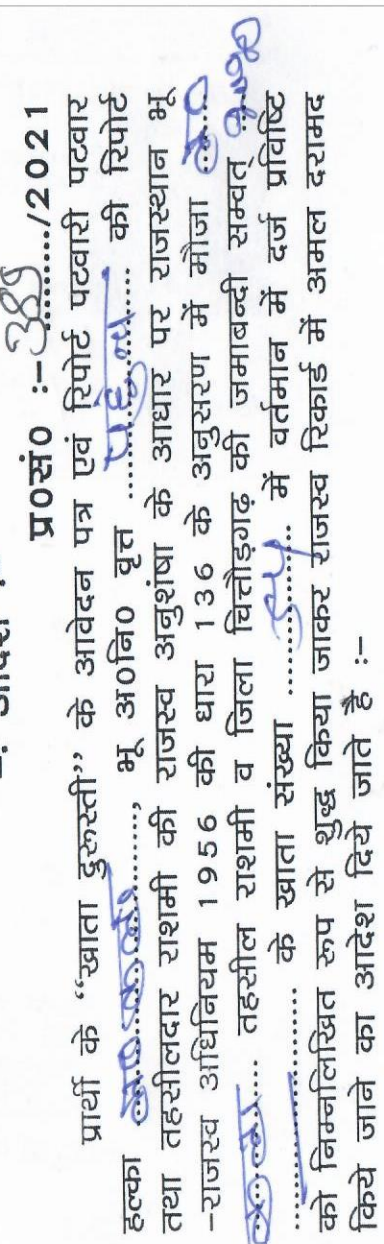 प्र०सं० :- 389 ......../2021
प्रार्थी के “खाता दुरूस्ती” के आवेदन पत्र एवं रिपोर्ट पटवारी पटवार
हल्का ................, भू अ०नि० वृत्त ................ की रिपोर्ट
तथा तहसीलदार राशमी की राजस्व अनुशंषा के आधार पर राजस्थान भू
-राजस्व अधिनियम 1956 की धारा 136 के अनुसरण में मौजा ......
........ तहसील राशमी व जिला चित्तोड़गढ़ की जमाबन्दी सम्वत् ........
................ के खाता संख्या ............ में वर्तमान में दर्ज प्रविष्टि
को निम्नलिखित रूप से शुद्ध किया जाकर राजस्व रिकार्ड में अमल दरामद
किये जाने का आदेश दिये जाते है :-